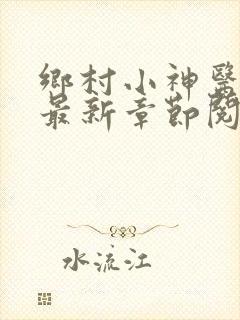 鄉村小神醫
最新章節閱
水流江